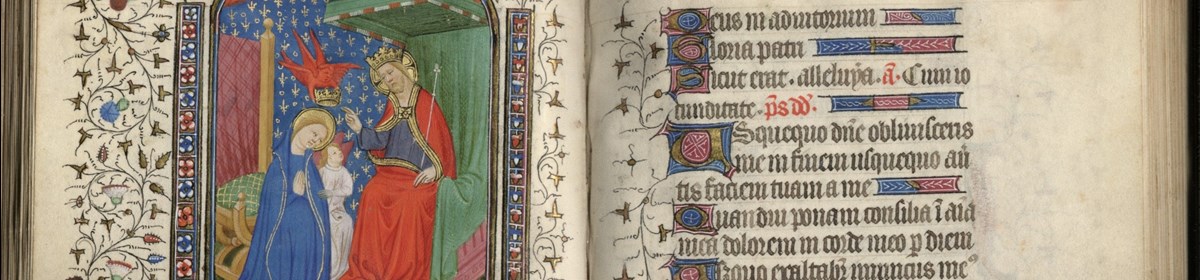 Deus in adiutorium
Gloria patri
Sicut erat. alleluya. a̅. Cum io
cunditate. p̅s dd̅.
USquequo dn̅e obliuisceris
me in finem usquequo au̅
tis faciem tuam a me
Quandiu ponam consilia i̅ aı̅a
mea dolorem in corde meo p̱ diem
Usquo exaltab̅r inimicus me⁹